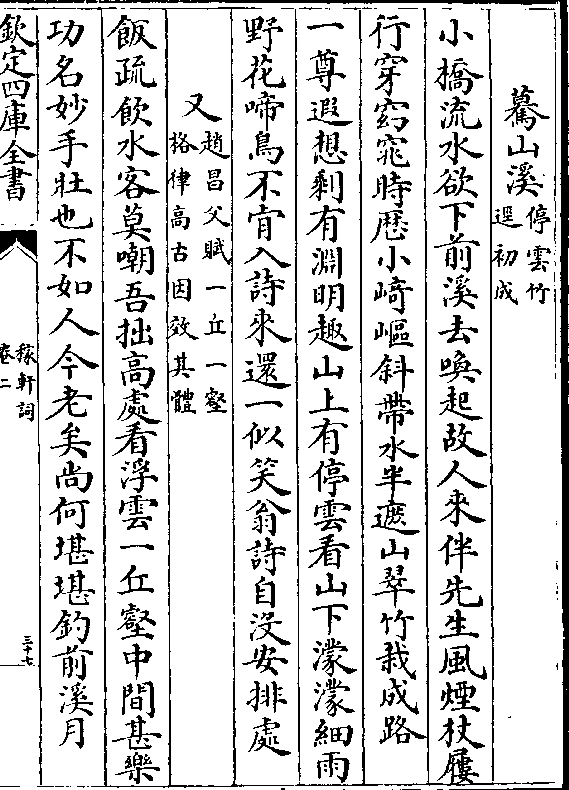 驀山溪停雲竹
逕初成
小橋流水欲下前溪去喚起故人來伴先生風煙杖屨
行穿窈窕時歴小崎嶇斜帶水半遮山翠竹栽成路
一尊遐想剩有淵明趣山上有停雲看山下濛濛細雨
野花啼鳥不肯入詩來還一似笑翁詩自没安排處
又趙昌父賦一丘一壑
格律高古因效其體
飯疏飲水客莫嘲吾拙高處看浮雲一丘壑中間甚樂
功名妙手壯也不如人今老矣尚何堪堪釣前溪月
欽定四庫全書
稼軒詞
卷二
三十七